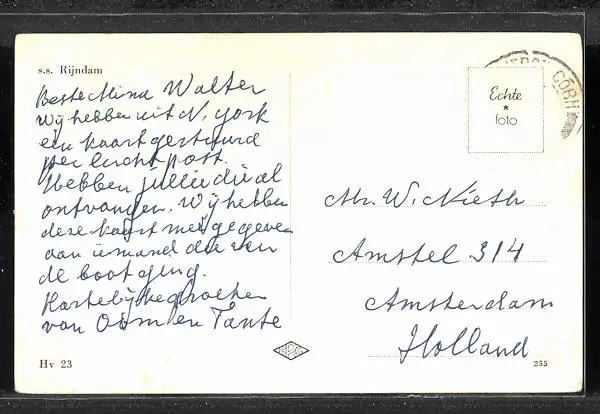 s.s. Rijndam
Beste Mina Walter
Wij hebben uit N. york
een kaart gestuurd
per luchtpost.
Hebben jullie die al
ontvangen. Wij hebben
deze kaart meegegeven
aan iemand die van
de boot ging.
Hartelijke groeten
van Oom en Tante
Hv 23
Echte
*
foto
CÓBH
Mr. W. Nieth
Amstel 314
Amsterdam
Holland
255